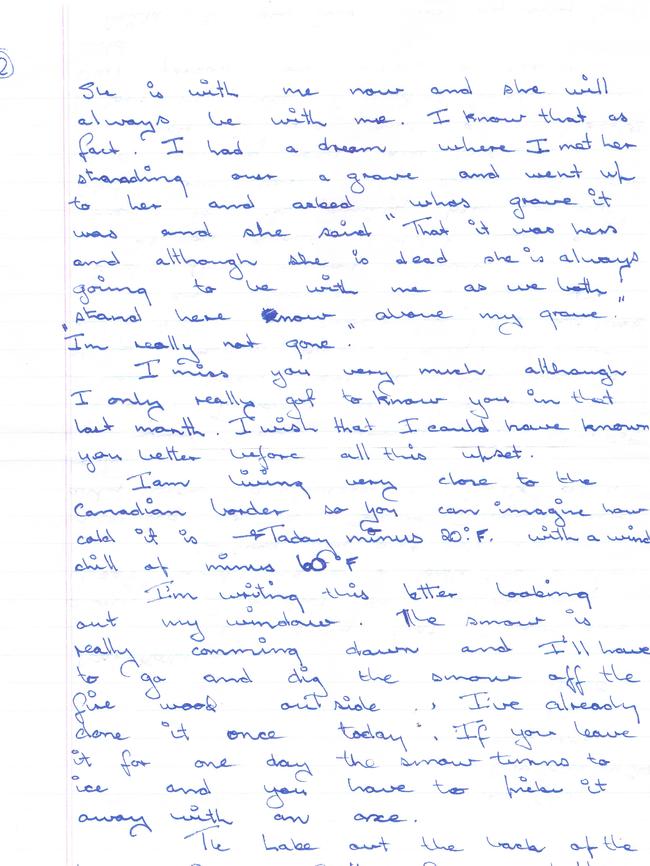 2
She is with me now and she will
always be with me. I know that as
fact. I had a dream where I met her
standing over a grave and went up
to her and asked whos grave it
was and she said "That it was hers
and although she is dead she is always
going to be with me as we both
stand here know above my grave."
"Im really not gone".
I miss you very much although
I only really got to know you in that
last month. I wish that I could have known
you better before all this upset.
I am living very close to the
Canadian border so you can imagine how
cold it is Today minus 20°F. with a wind
chill of minus 60°F
I'm writing this letter looking
out my window. The snow is
really comming down and I'll have
to go and dig the snow off the
fire wood out side., I've already
done it once today. If you leave
it for one day the snow turns to
ice and you have to pick it
away with an axe.
The Lake out the back of the